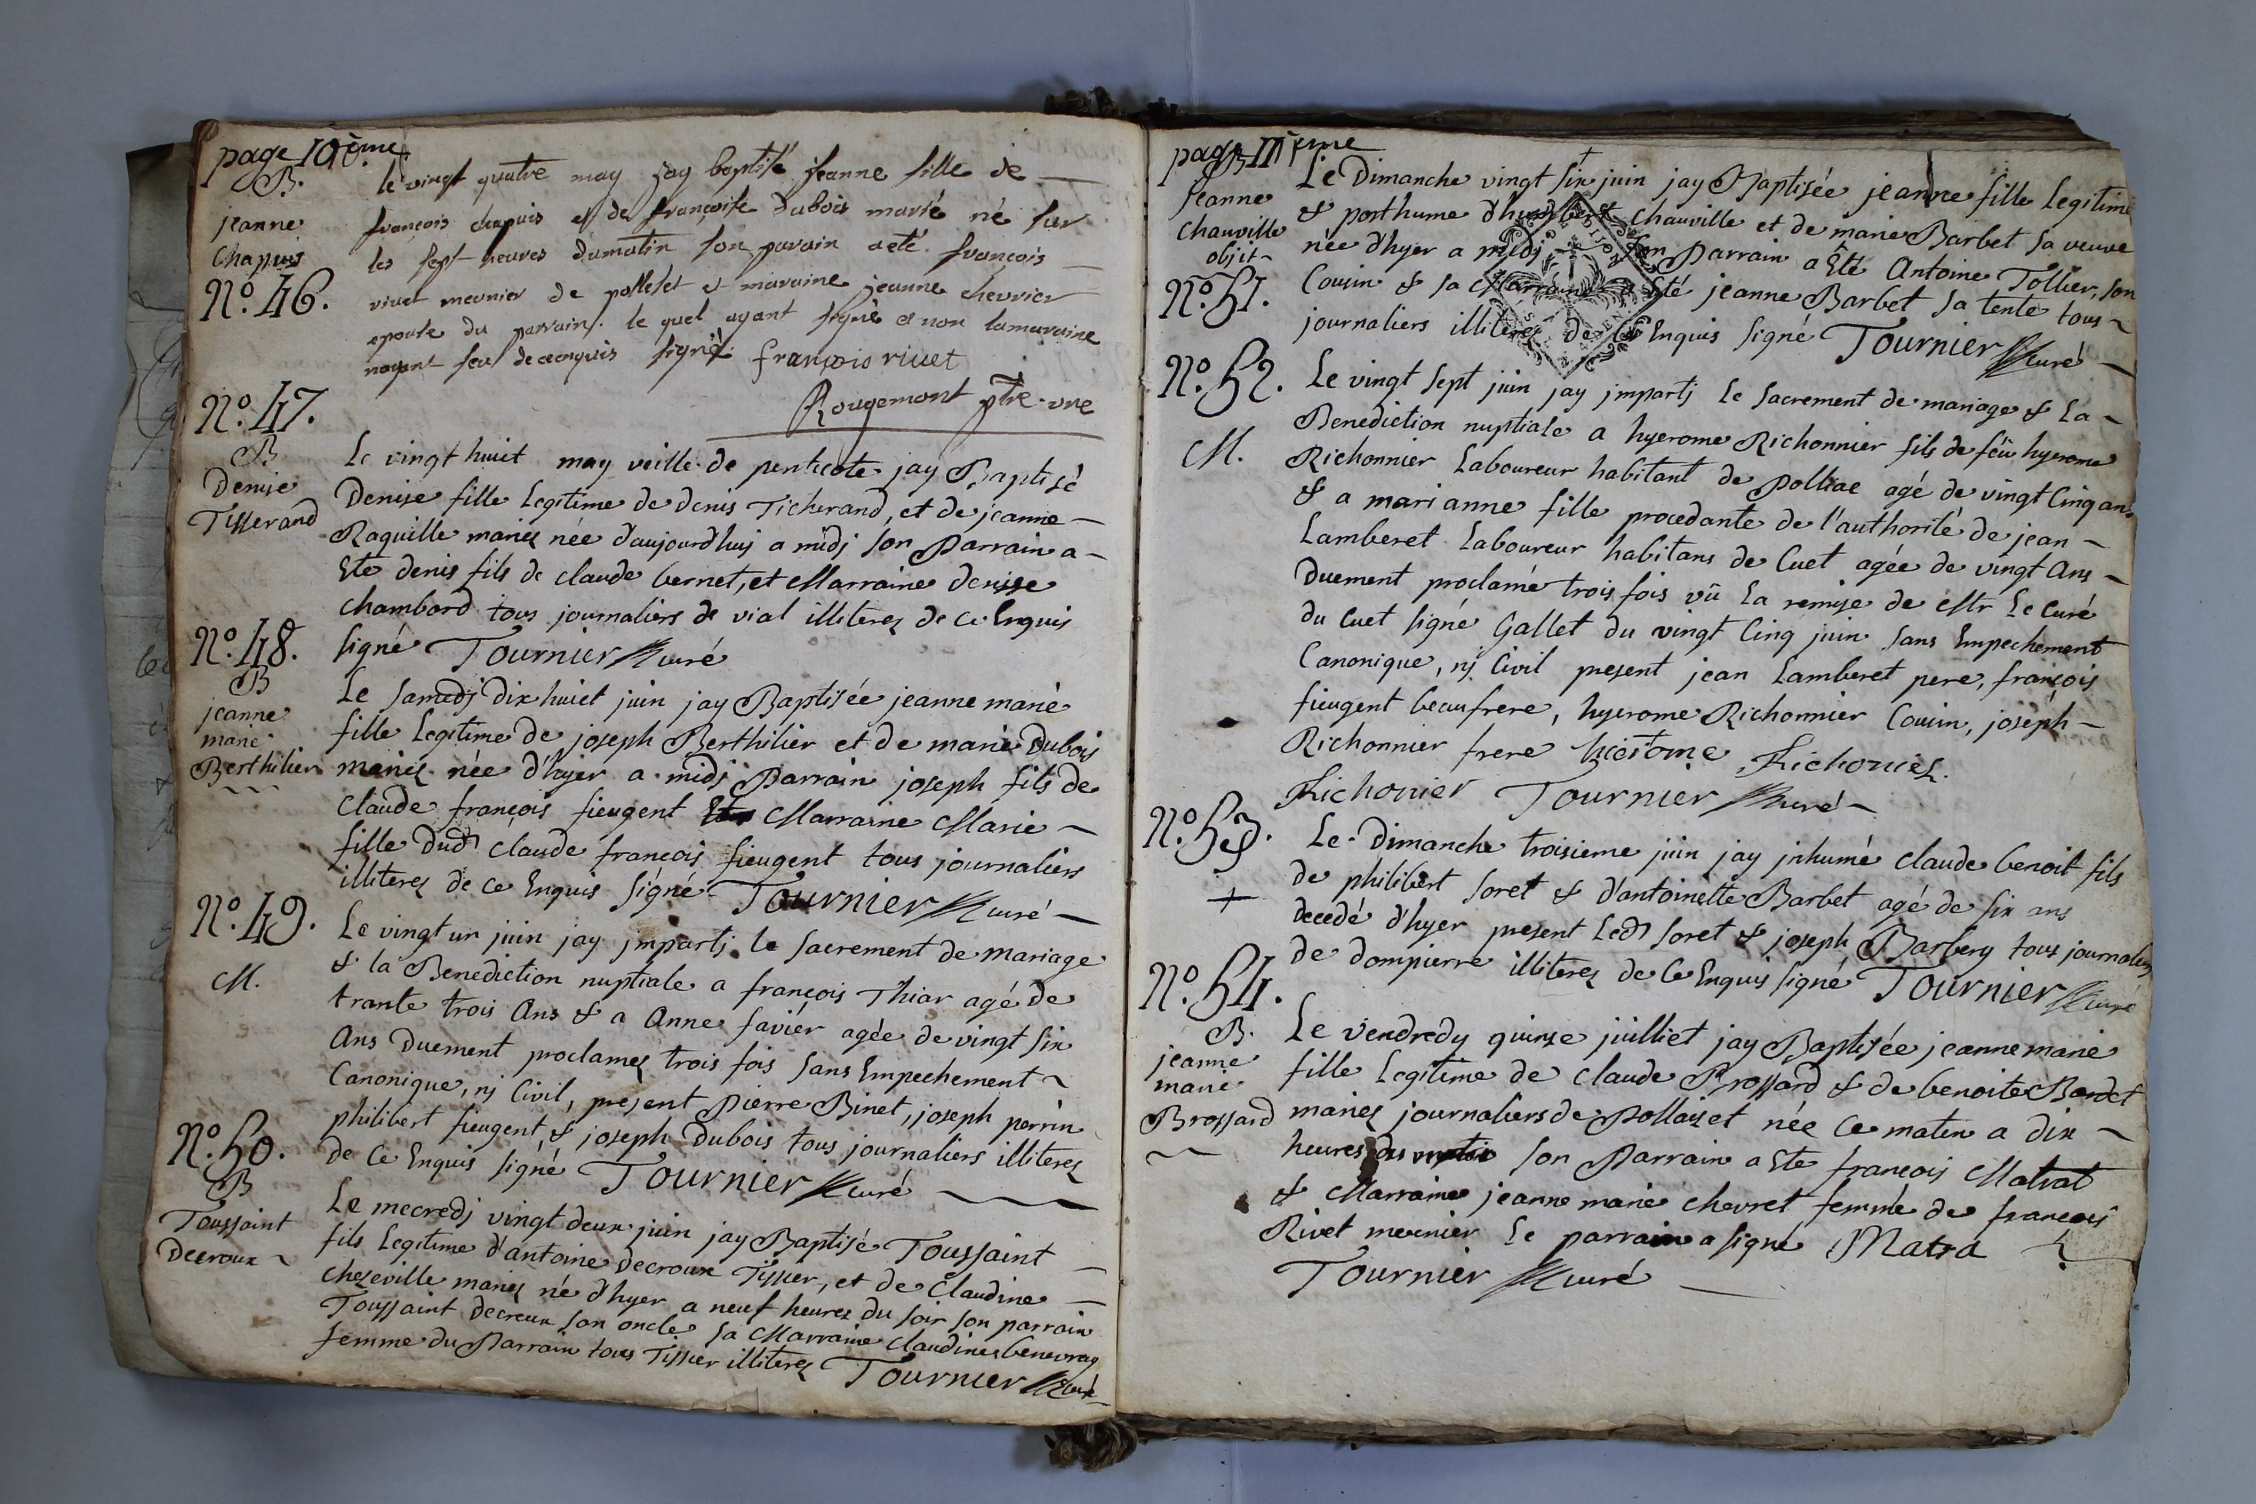 page 10ème
B.
jeanne
Chapuis
N.º 46.
le vingt quatre may jay baptisé jeanne fille de
francois chapuis et de françoise dubois marié né sur
les sept heures dumatin son parain aeté francois
rivet meunier de polleset et maraine jeanne chevrier
epouse du parrain. le quel ayant signé et non lamaraine
nayant seu de ce enquis signé. françois rivet
Rougemont ptre. vre
N.º 47.
B
Denise
Tisserand
Le vingt huit may veille de penticote jay Baptisé
Denise fille Legitime de denis Ticherand, et de jeanne
Raquille mariez née d'aujourdhuj a midj son Parrain a
Ete denis fils de claude bernet, et Marraine denise
chambord tous journaliers de vial illiterez de ce Enquis
signé Tournier curé
N.º 48.
B
jeanne
marie
Berthilier
Le samedj dix huict juin jay Baptisée jeanne marie
fille Legitime de joseph Berthilier et de marie Dubois
mariez née d'hyer a midj Parrain joseph fils de
claude françois fieugent Marraine Marie
fille dud claude françois fieugent tous journaliers
illiterez de ce Enquis signé Tournier curé
N.º 49.
M.
Le vingt un juin jay jmpartj le sacrement de mariage
& la Benediction nuptiale a françois Thiar agé de
trante trois Ans & a Anne favier agée de vingt six
Ans Duement proclamez trois fois sans Empechement
Canonique, nj Civil, present Pierre Binet, joseph perrin
philibert fieugent, & joseph Dubois tous journaliers illiterez
de ce Enquis signé Tournier curé
N.º 50.
B
Toussaint
Decroux
Le mecredj vingt deux juin jay Baptisé Toussaint
fils Legitime d'antoine decroux Tissier, et de Claudine
cheseville mariez né d'hyer a neuf heures du soir son parrain
Toussaint decreux son oncle sa Marraine Claudine benevray
femme du Parrain tous Tissier illiterez Tournier curé
page 11ème
B
Jeanne
Chauville
objit
N.º 51.
Le Dimanche vingt six juin jay Baptisée jeanne fille Legitime
& posthume d'humbert Chauville et de marie Barbet sa veuve
née d'hyer a midj son Parrain a Eté Antoine Tollier, son
Cousin & sa Marraine a Eté jeanne Barbet sa tente tous
journaliers illiterez de ce Enquis signé Tournier curé
N.º 52.
M.
Le vingt sept juin jay jmpartj le sacrement de mariage & la
Benediction nuptiale a hyerome Richonnier fils de feü hyerome
Richonnier Laboureur habitant de Polliae agé de vingt Cinq ans
& a marianne fille procedante de l'authorité de jean
Lamberet Laboureur habitans de Cuet agée de vingt Ans
Duement proclamé trois fois vû la remise de Mr le curé
du cuet signé Gallet du vingt Cinq juin sans Empechement
Canonique, nj Civil present jean Lamberet pere, françois
fieugent beaufrere, hyerome Richonnier Cousin, joseph
Richonnier frere hierome Richonier
Richonier Tournier curé
N.º 53.
+
Le Dimanche troisieme juin jay jnhumé claude benoit fils
de philibert soret & d'antoinette Barbet agé de six ans
decedé d'hyer present led soret & joseph Barbery tous journaliers
de dompierre illiterez de ce Enquis signé Tournier curé
N.º 54.
B.
jeanne
marie
Brossard
Le vendredy quinze juilliet jay Baptisée jeanne marie
fille Legitime de claude Brossard & de benoite Bardet
mariez journaliers de Pollaizet née ce matin a dix
heures du matin son Parrain a Ete françois Matrat
& Marraine jeanne marie chevret femme de françois
Rivet meunier le parrain a signé Matra
Tournier curé